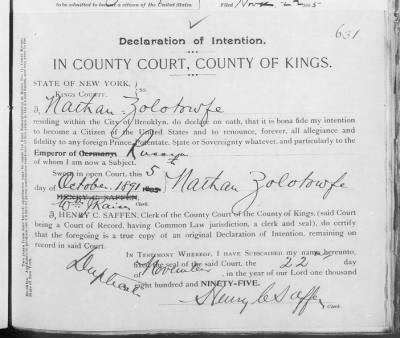 to be admitted to become a citizen of the United States.
Filed Nov. 22 1895
631
Declaration of Intention.
IN COUNTY COURT, COUNTY OF KINGS.
STATE OF NEW YORK, } ss:
KINGS COUNTY.
I, Nathan Zolotowfe
residing within the City of Brooklyn, do declare on oath, that it is bona fide my intention
to become a Citizen of the United States and to renounce, forever, all allegiance and
fidelity to any foreign Prince, Potentate, State or Sovereignty whatever, and particularly to the
Emperor of Germany, Russia
of whom I am now a Subject.
Sworn in open Court, this 5th
day of October 1891
Nathan Zolotowfe
HENRY C. SAFFEN,
Clerk.
I, HENRY C. SAFFEN, Clerk of the County Court of the County of Kings, (said Court
being a Court of Record, having Common Law jurisdiction, a clerk and seal), do certify
that the foregoing is a true copy of an original Declaration of Intention, remaining on
record in said Court.
IN TESTIMONY WHEREOF, I HAVE SUBSCRIBED my name hereunto,
the seal of the said Court, the 22 day
of November, in the year of our Lord one thousand
eight hundred and NINETY-FIVE.
Duplicate
Henry C Saffen Clerk.